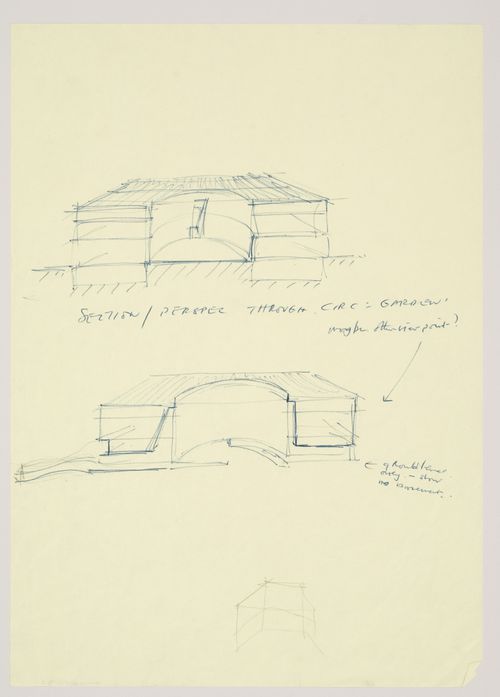 SECTION / PERSPEC THROUGH CIRC: GARDEN.
maybe other view point?
← ground level
only – show
no basement..